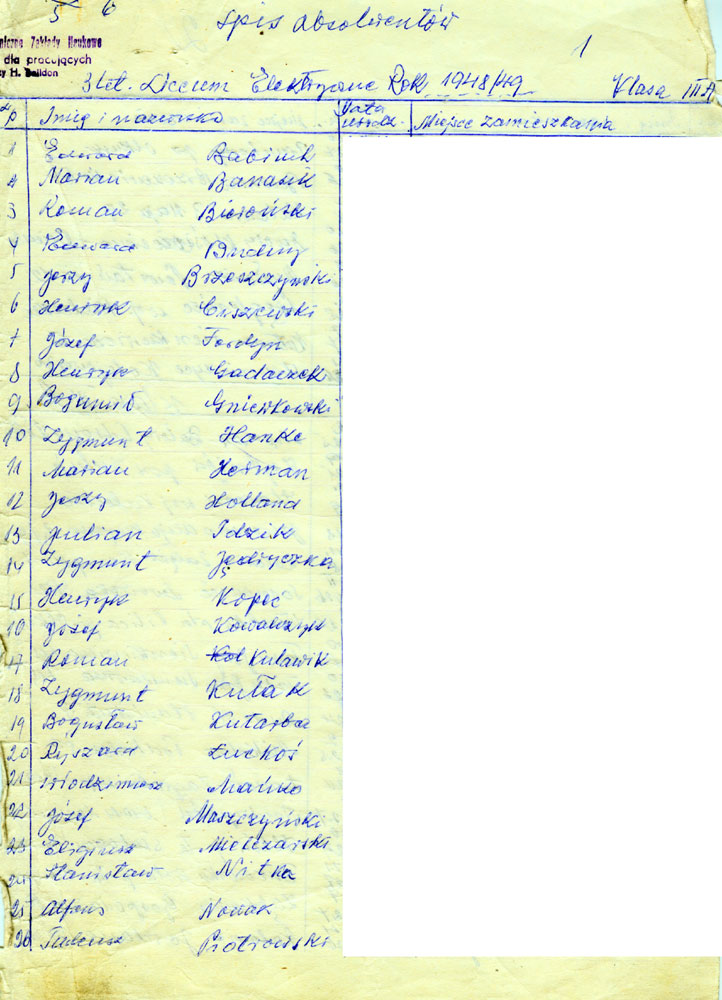 5 6
Spis absolwentów
1
Zakłady Naukowe
dla pracujących
H. Baildon
3 let. Liceum Elektryczne Rok 1948/49 Klasa III A
Lp Imię i nazwisko Data urodz. Miejsce zamieszkania
1 Edward Babiuch
2 Marian Banasik
3 Roman Bieroński
4 Edward Budny
5 Jerzy Brzeszczyński
6 Henryk Ciszewski
7 Józef Fordyn
8 Henryk Gadaczek
9 Bogumił Gniewkowski
10 Zygmunt Hanke
11 Marian Herman
12 Jerzy Holland
13 Julian Idzik
14 Zygmunt Jędryczka
15 Henryk Kopec
16 Józef Kowalczyk
17 Roman Kulawik
18 Zygmunt Kułak
19 Bogusław Kutarba
20 Ryszard Łuckoś
21 Włodzimierz Mańko
22 Józef Maszczyński
23 Eligiusz Mielczarski
24 Stanisław Nitka
25 Alfons Nowak
26 Tadeusz Piotrowski